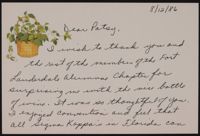 8/12/86
Dear Patsy,
I wish to thank you and
the rest of the members of the Fort
Lauderdale Alumnae Chapter for
surprising us with the nice bottle
of wine. It was so thoughtful of you.
I enjoyed convention and feel that
all Sigma Kappas in Florida can